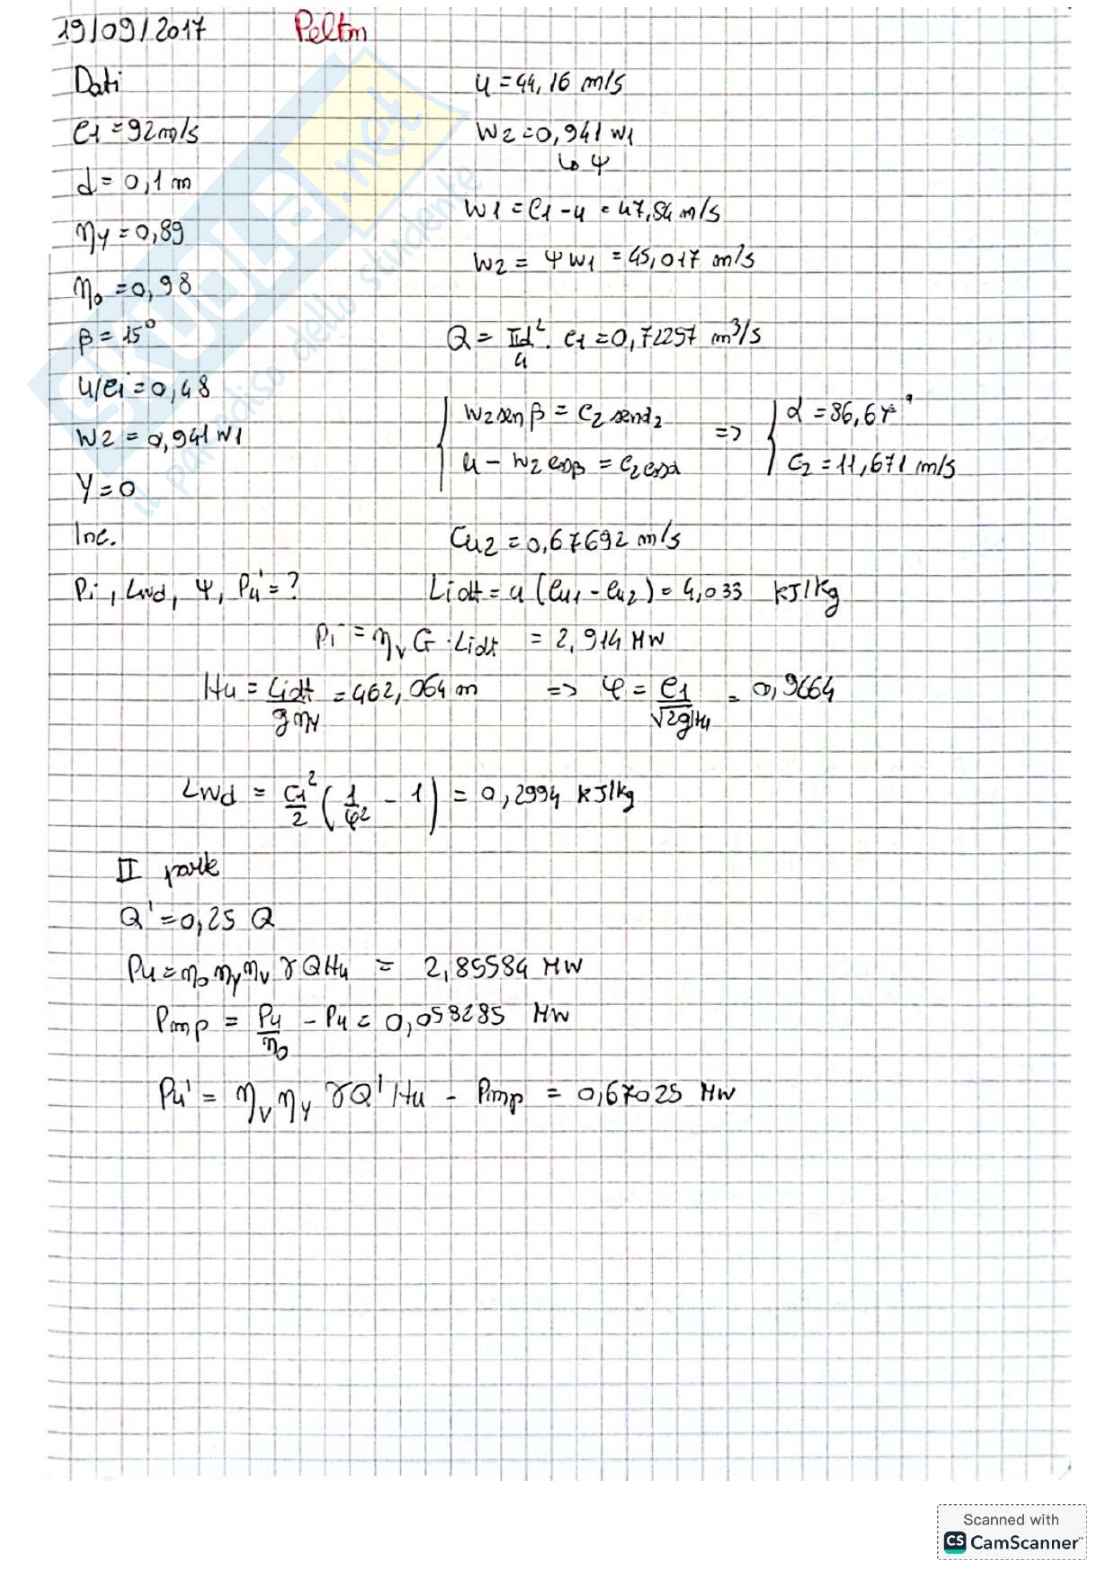 19/09/2017 Pelton
Dati
C1 = 92 m/s
d = 0,1 m
ηy = 0,89
ηo = 0,98
β = 15°
u/c1 = 0,48
W2 = 0,941 W1
Y = 0
Inc.
Pi, Lwd, φ, Pu' = ?
u = 44,16 m/s
W2 = 0,941 W1
↳ ψ
W1 = C1 - u = 47,84 m/s
W2 = ψ W1 = 45,017 m/s
Q = πd²/4 · C1 = 0,72257 m³/s
{ W2 sen β = C2 sen α2
u - W2 cos β = C2 cos α
=> { α = 86,67°
C2 = 11,671 m/s
Cu2 = 0,67692 m/s
Lidt = u (Cu1 - Cu2) = 4,033 kJ/kg
Pi = ηv G · Lidt = 2,914 MW
Hu = Lidt/(g ηy) = 462,064 m => φ = C1/√2gHu = 0,9664
Lwd = C1²/2 (1/φ² - 1) = 0,2994 kJ/kg
II parte
Q' = 0,25 Q
Pu = ηo ηy ηv γ Q Hu = 2,85584 MW
Pmp = Pu/ηo - Pu = 0,058285 MW
Pu' = ηv ηy γ Q' Hu - Pmp = 0,67025 MW
CULT.net
il paradiso dello studente
Scanned with
CS CamScanner